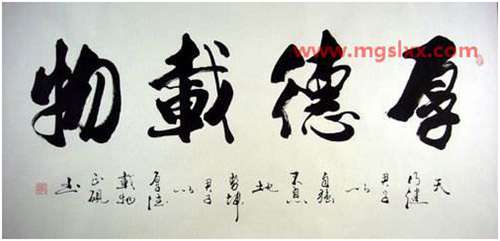 www.mgslxx.com
厚德載物
天
行健
君子
以
自強
不息
地
勢坤
君子
以
厚德
載物